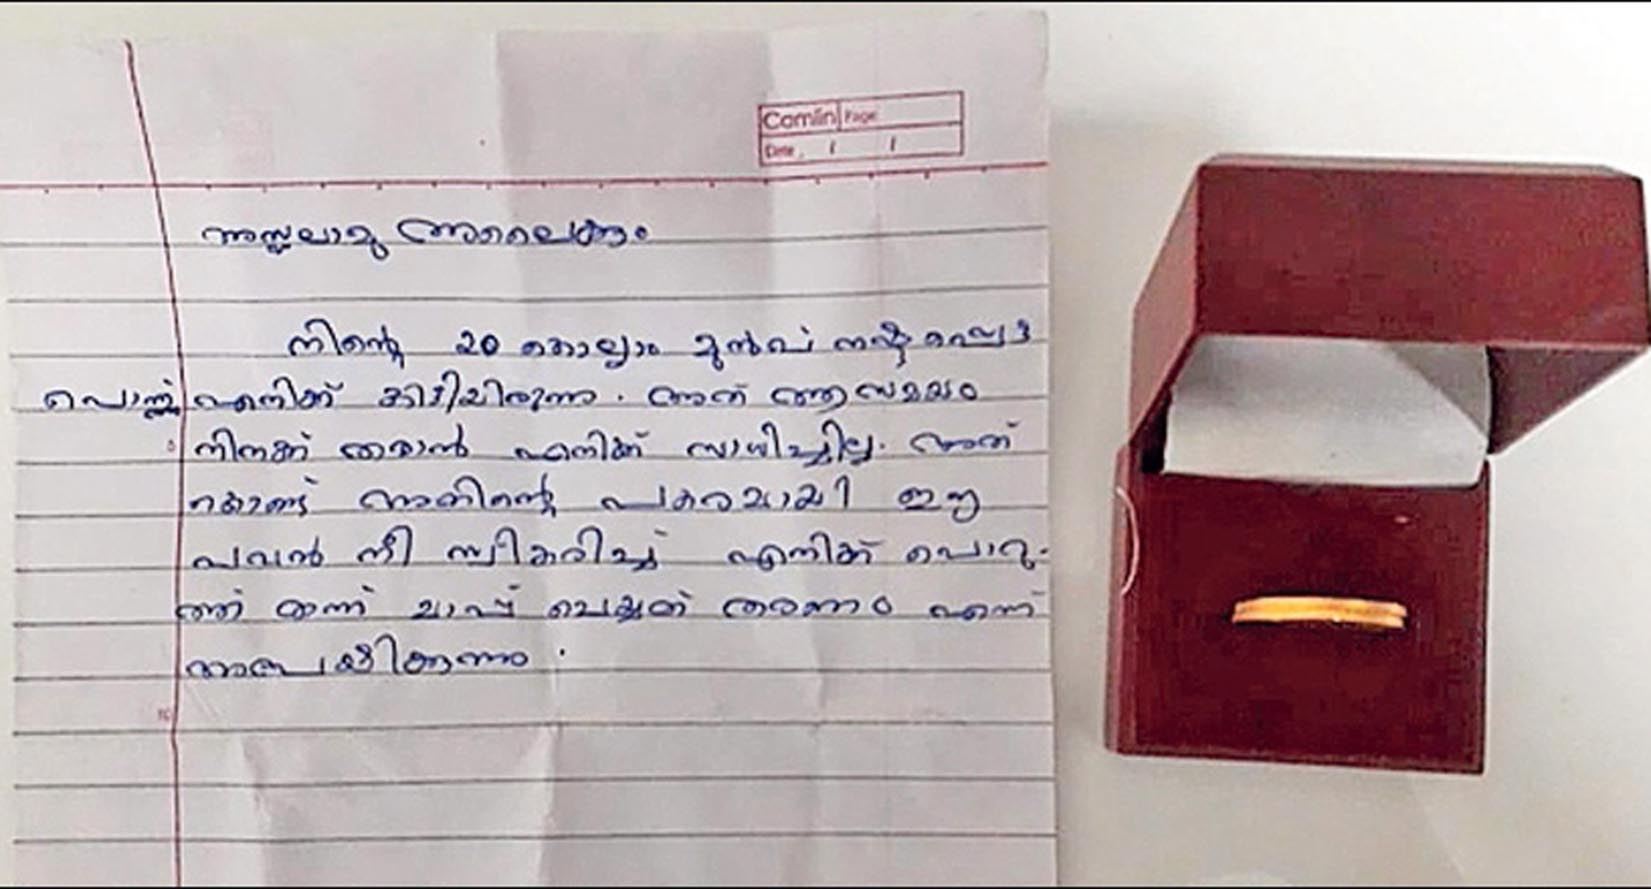 Camlin Page
Date / /
അസ്സലാമു അലൈക്കും
നിന്റെ 20 കൊല്ലം മുൻപ് നഷ്ടപ്പെട്ട
പൊന്ന് എനിക്ക് കിട്ടിയിരുന്നു. അത് ആ സമയം
നിനക്ക് തരാൻ എനിക്ക് സാധിച്ചില്ല. അത്
കൊണ്ട് അതിന്റെ പകരമായി ഈ
പവൻ നീ സ്വീകരിച്ച് എനിക്ക് പൊറു-
ത്ത് തന്ന് മാപ്പ് ചെയ്ത് തരണം എന്ന്
അപേക്ഷിക്കുന്നു.